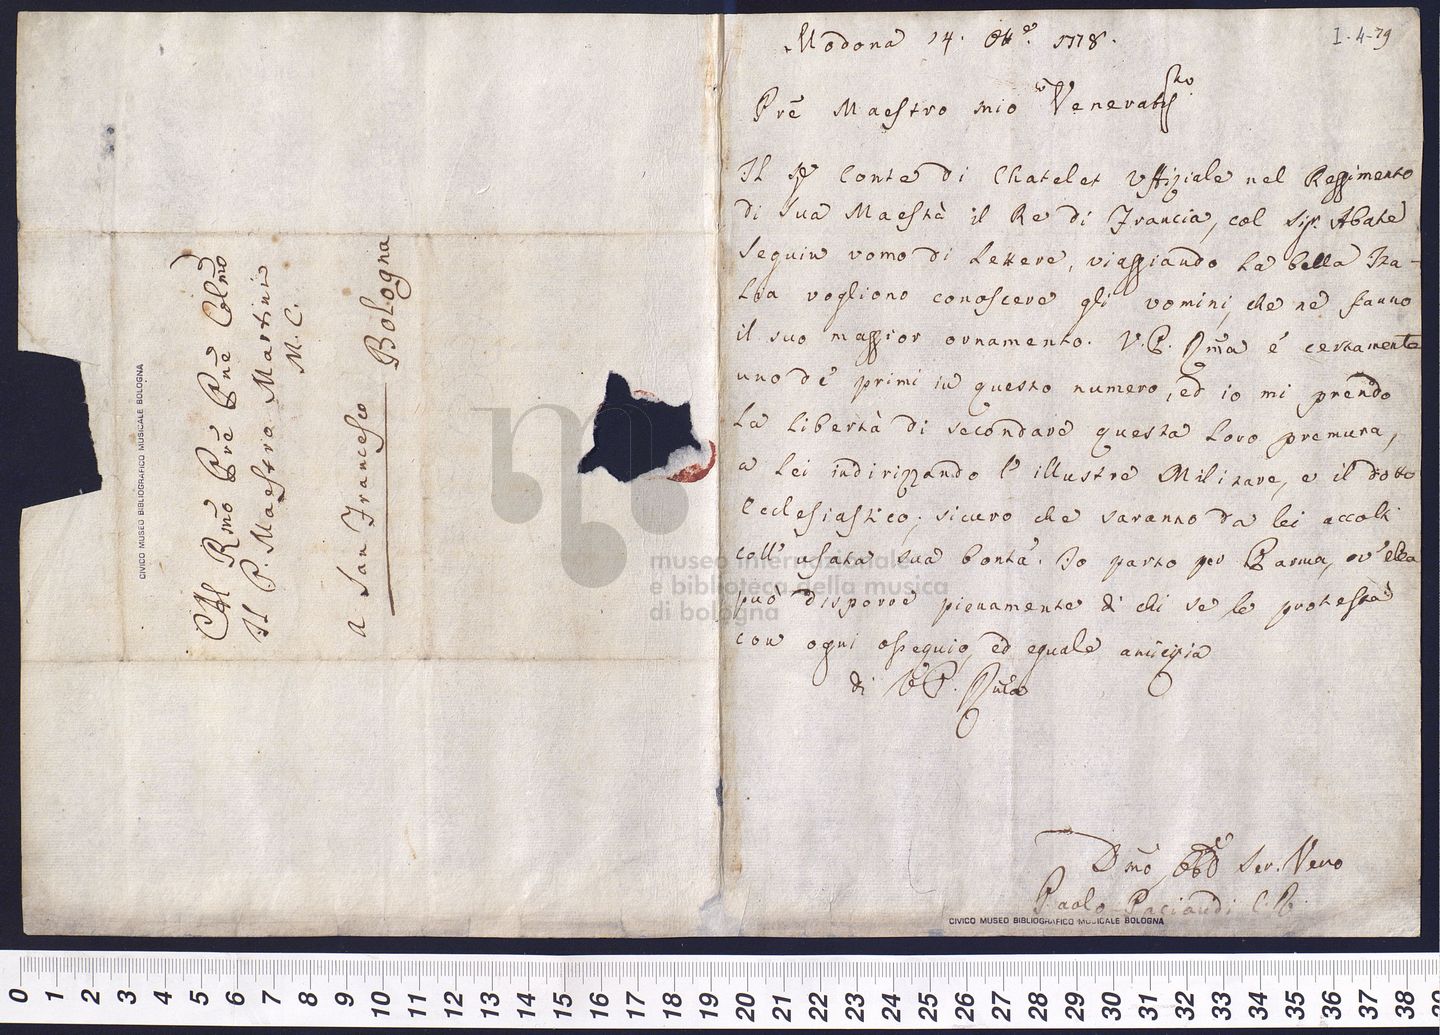 Al Rmo Pre Pne Colmo
Il P. Maestro Martini
M. C.
a San Francesco Bologna
CIVICO MUSEO BIBLIOGRAFICO MUSICALE BOLOGNA
I-4-79
Modona 14. Ott.e 1778.
Pre Maestro mio Venerat.
Il Sr Conte di Chatelet Uffiziale nel Reggimento
di Sua Maestà il Re di Francia, col Sigr. Abate
Seguin uomo di Lettere, viaggiando la bella Ita-
lia vogliono conoscere gli uomini, che ne fanno
il suo maggior ornamento. V. P. Rma è certamente
uno de' primi in questo numero, ed io mi prendo
la libertà di secondare questa loro premura,
a Lei indirizzando l'illustre Militare, e il dotto
Ecclesiastico; sicuro che saranno da lei accolti
coll' usata sua bontà. Io parto per Parma, ov' ella
può disporre pienamente di chi se le protesta
con ogni ossequio, ed eguale amicizia
di V. P. Rma
Dmo, Obb Ser. Vero
Paolo Paciaudi C. R.
CIVICO MUSEO BIBLIOGRAFICO MUSICALE BOLOGNA
museo internazionale
e biblioteca della musica
di bologna
0 1 2 3 4 5 6 7 8 9 10 11 12 13 14 15 16 17 18 19 20 21 22 23 24 25 26 27 28 29 30 31 32 33 34 35 36 37 38